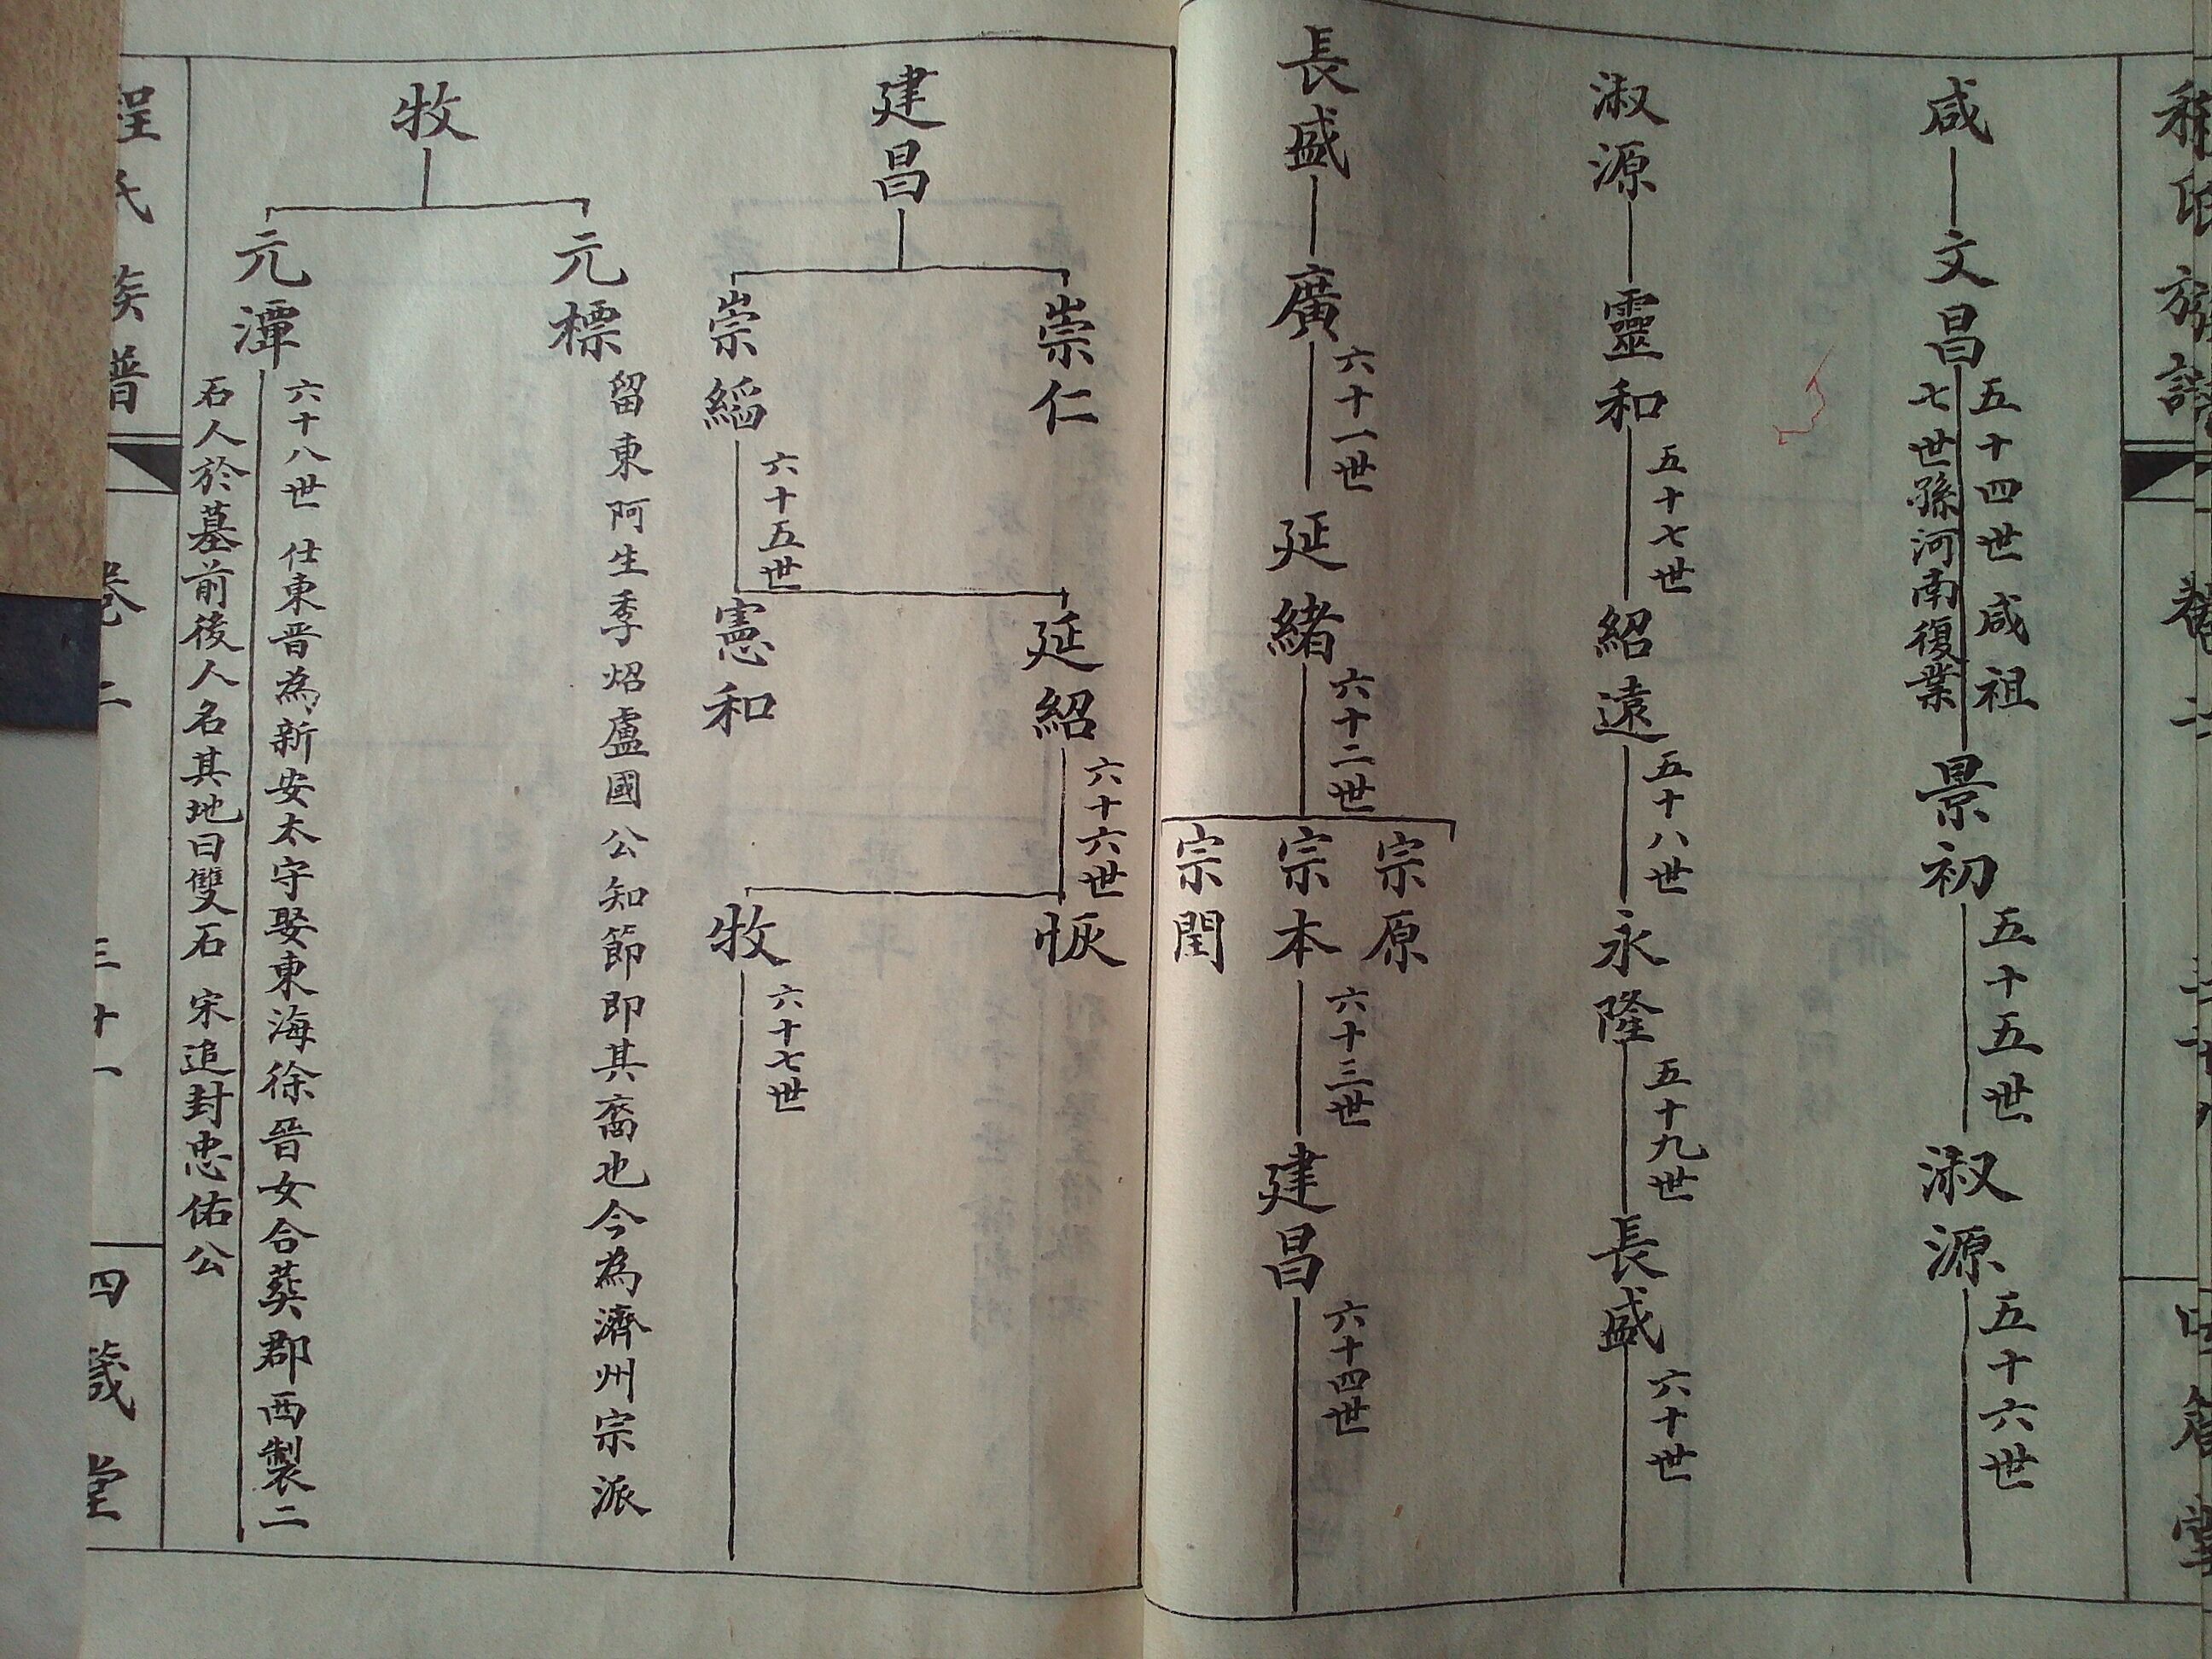 咸
文昌
五十四世咸祖
七世孫河南復業
景初
五十五世
淑源
五十六世
淑源
靈和
五十七世
紹遠
五十八世
永隆
五十九世
長盛
六十世
長盛
廣
六十一世
延緒
六十二世
宗原
宗本
宗閏
六十三世
建昌
六十四世
建昌
崇仁
崇縚
六十五世
延紹
憲和
六十六世
恢
牧
六十七世
牧
元標
留東阿生季炤盧國公知節即其裔也今為濟州宗派
元潭
六十八世 仕東晋為新安太守娶東海徐晉女合葬郡西製二
石人於墓前後人名其地曰雙石 宋追封忠佑公
程氏族譜
卷二
三十一
四箴堂